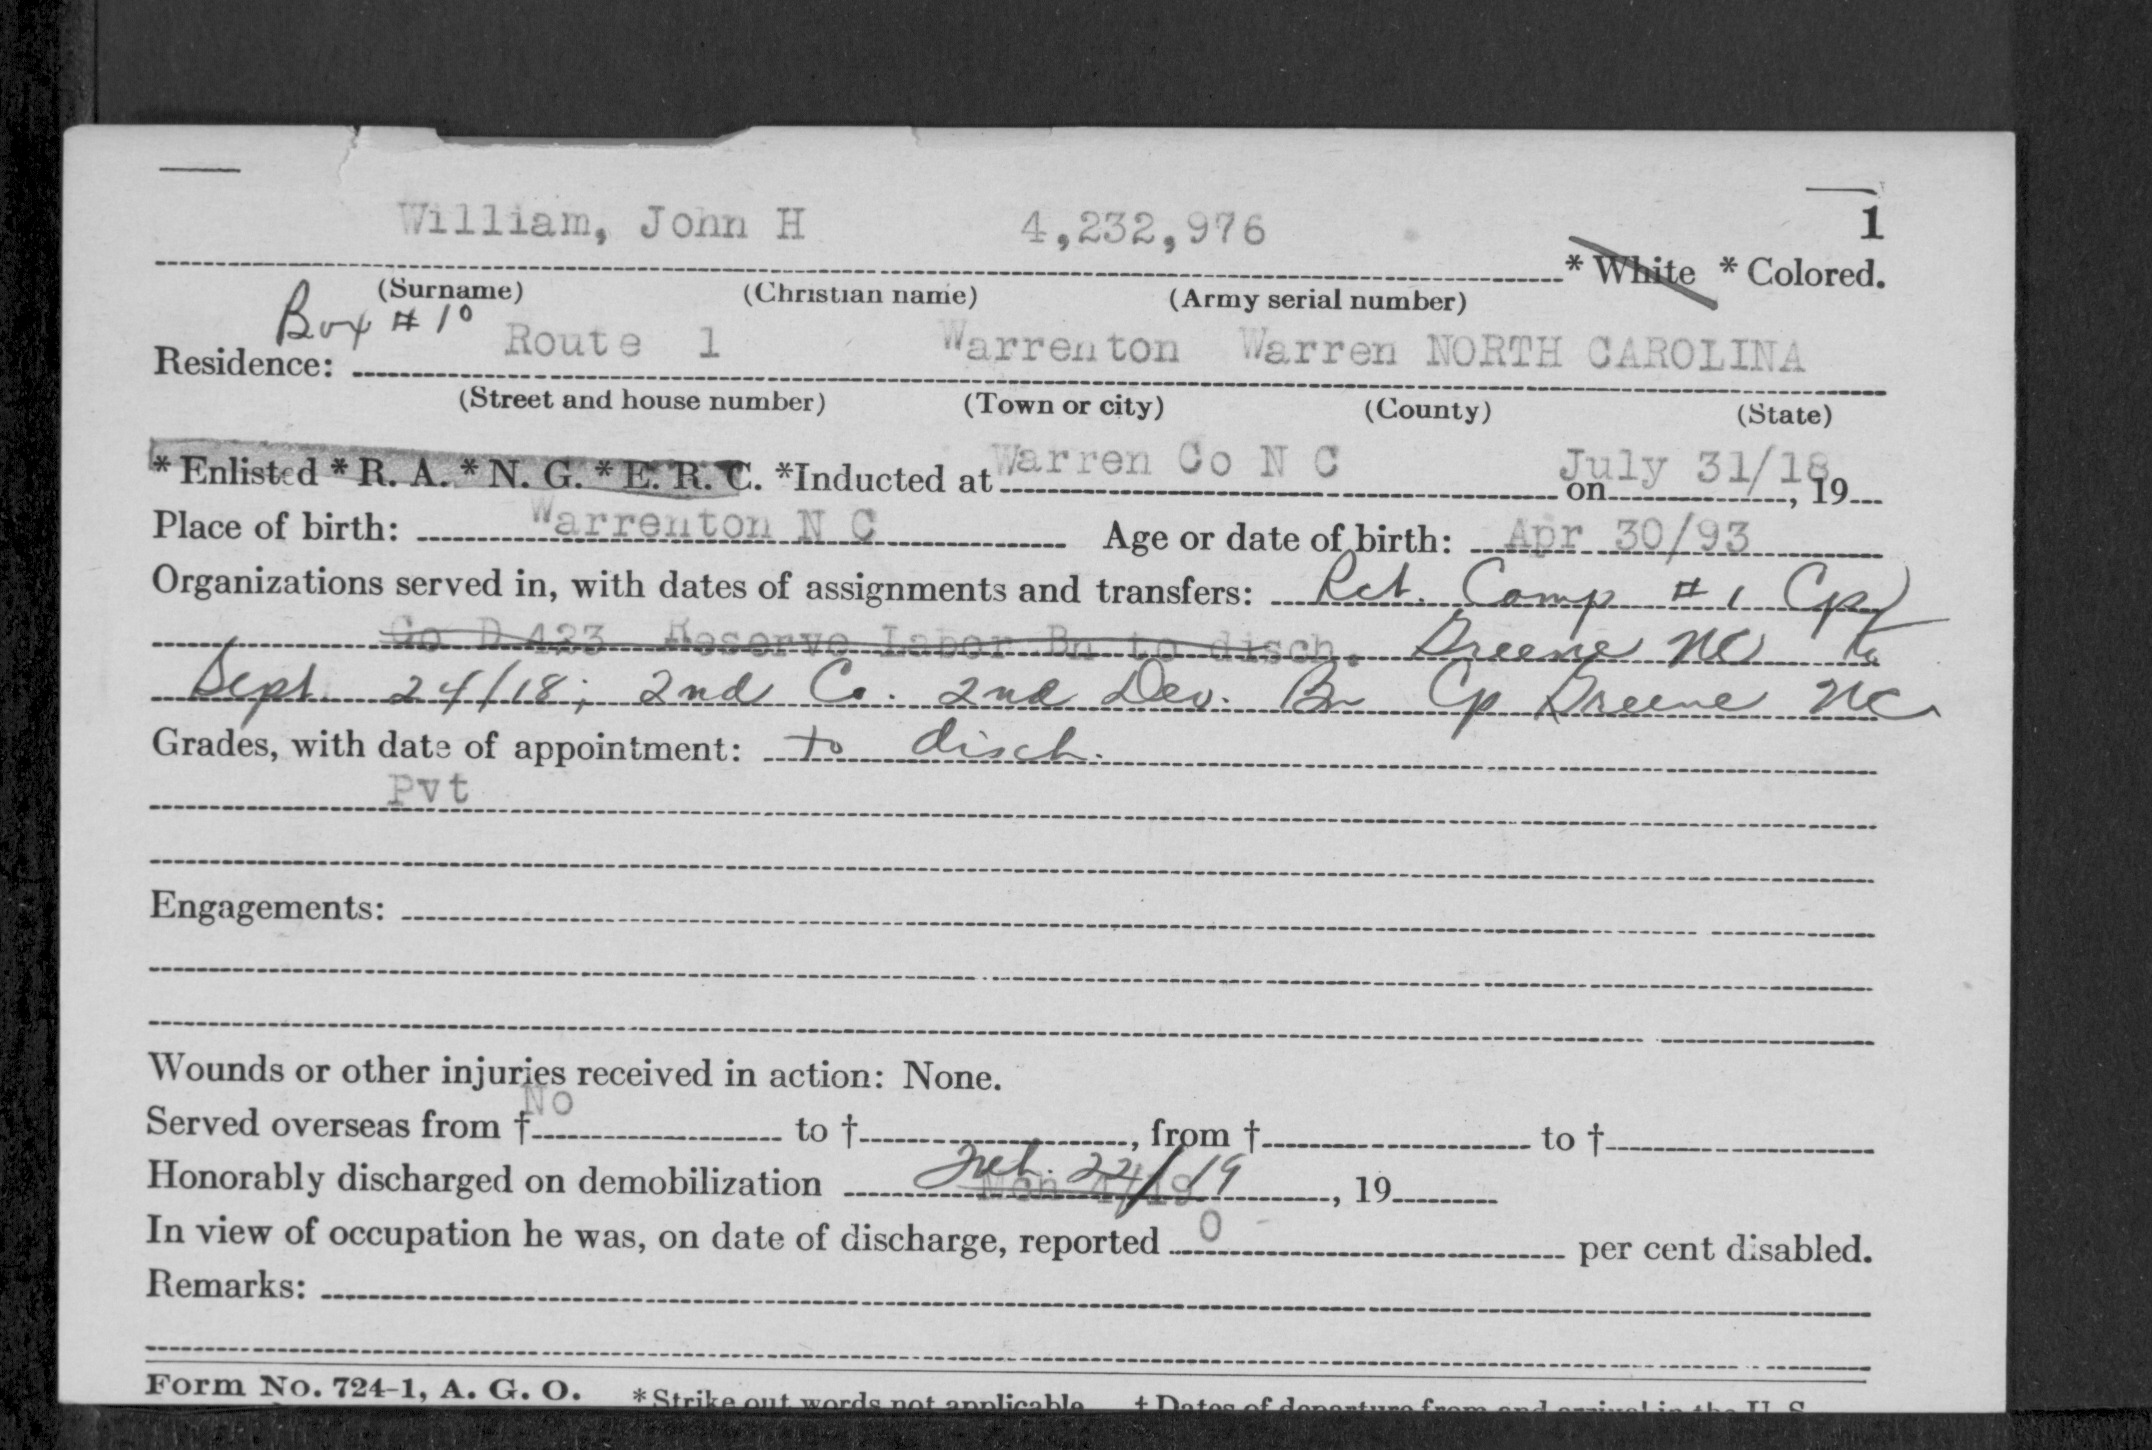 William, John H 4,232,976 1
* White * Colored.
(Surname) (Christian name) (Army serial number)
Box # 10 Route 1 Warrenton Warren NORTH CAROLINA
Residence:
(Street and house number) (Town or city) (County) (State)
* Enlisted * R. A. * N. G. * E. R. C. *Inducted at Warren Co N C on July 31/18, 19
Place of birth: Warrenton N C Age or date of birth: Apr 30/93
Organizations served in, with dates of assignments and transfers: Rct. Camp # 1 Cp
Co D 423 Reserve Labor Bn to disch. Greene NC to
Sept 24/18; 2nd Co. 2nd Dev. Bn Cp Greene NC
Grades, with date of appointment: to disch.
Pvt
Engagements:
Wounds or other injuries received in action: None.
Served overseas from † No to †, from † to †
Honorably discharged on demobilization Feb. 22/19 Mch 4/19, 19
In view of occupation he was, on date of discharge, reported 0 per cent disabled.
Remarks:
Form No. 724-1, A. G. O. *Strike out words not applicable † Dates of departure from and arrival in the U. S.